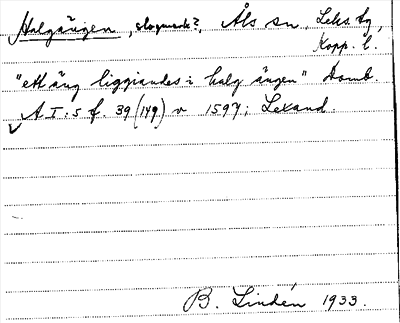 Halgängen, slogmark?, Åls sn, Leks. tg,
Kopp. l.
"ett äng liggiandes i halg ängen" Domb.
A I:5 f. 39 (149) v 1597; Leksand.
B. Lindén 1933.